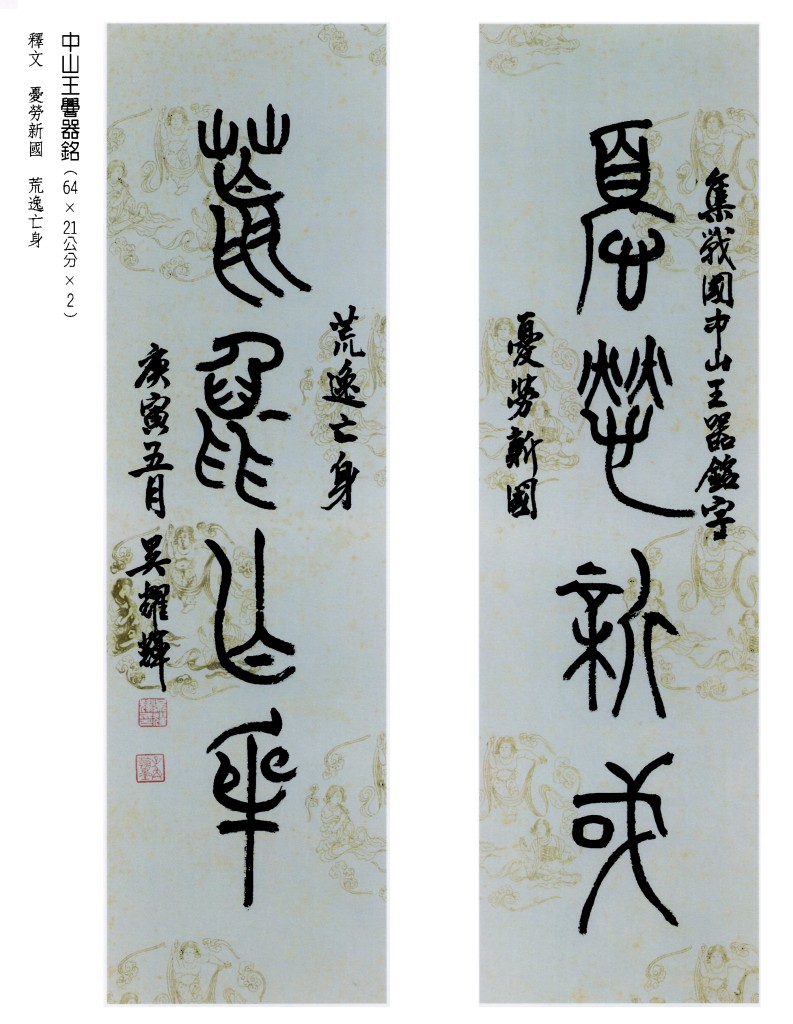 中山王嚳器銘（64×21公分×2）
釋文　憂勞新國　荒逸亡身
集戰國中山王器銘字
憂勞新或
憂勞新國
荒逸亡身
荒逸亡身
庚寅五月　吳耀輝